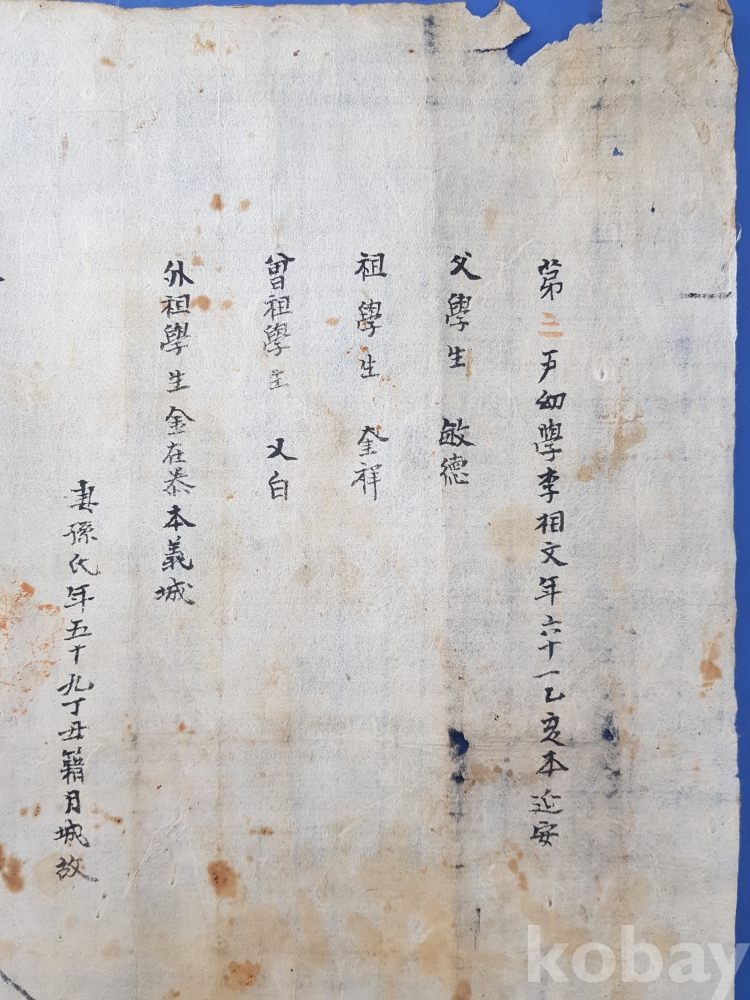 第二戶幼學李相文年六十一乙亥本延安
父學生 敏德
祖學生 奎祥
曾祖學生 乂白
外祖學生金在泰本義城
妻孫氏年五十九丁丑籍月城故
kobay